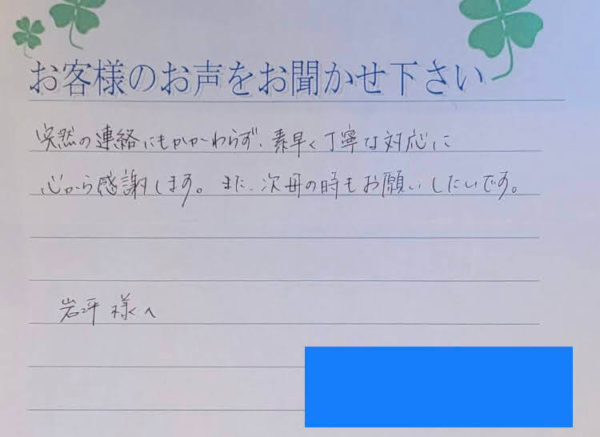 お客様のお声をお聞かせ下さい
突然の連絡にもかかわらず、素早く丁寧な対応に
心から感謝します。また、次回の時もお願いしたいです。
岩坪様へ